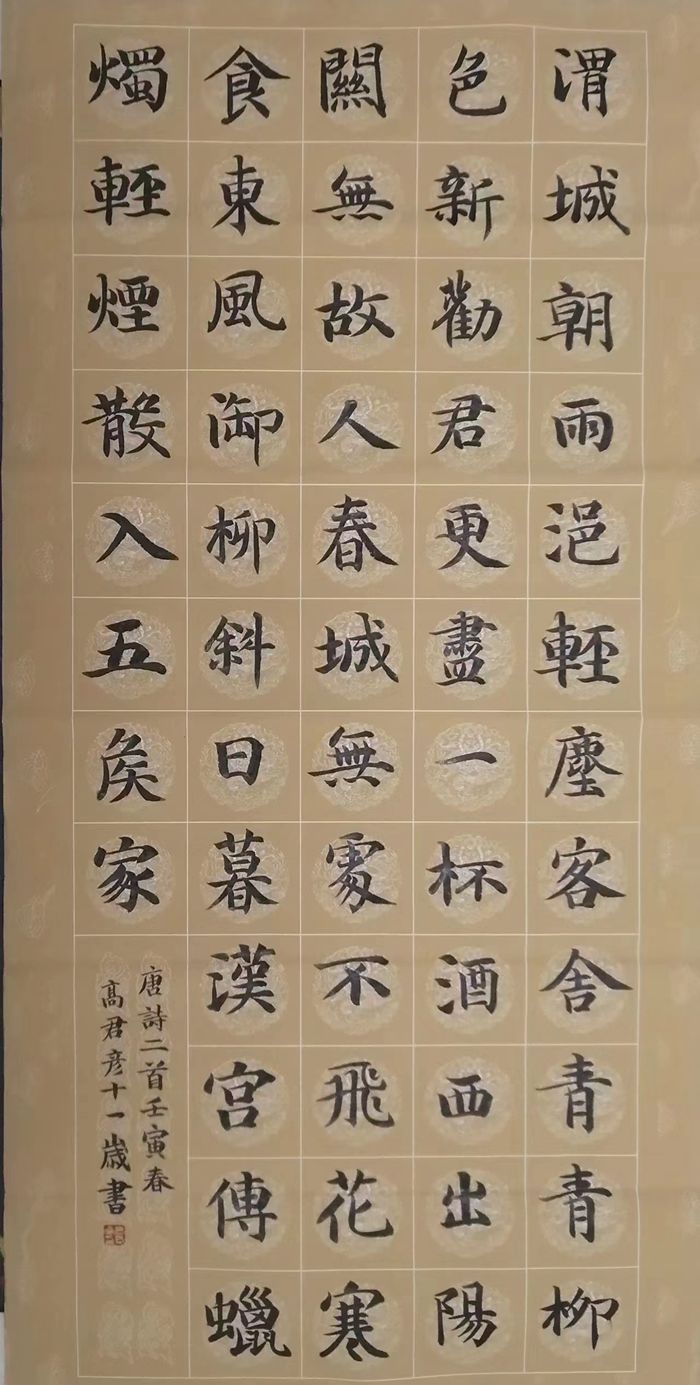 渭城朝雨浥輕塵客舍青青柳
色新勸君更盡一杯酒西出陽
關無故人春城無處不飛花寒
食東風御柳斜日暮漢宮傳蠟
燭輕煙散入五侯家
唐詩二首壬寅春
高君彥十一歲書